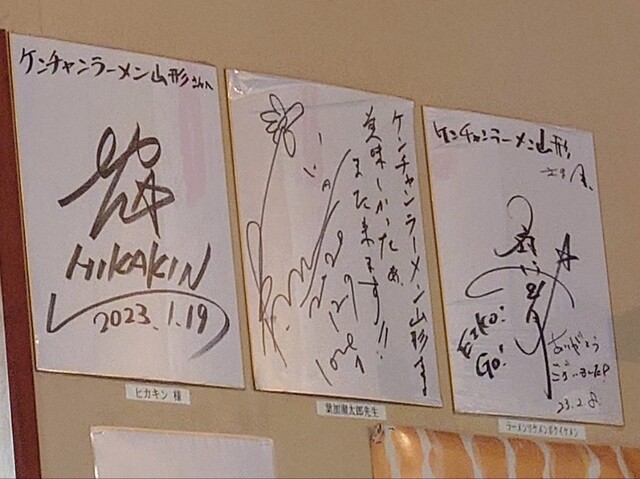 ケンチャンラーメン山形さんへ
HIKAKIN
2023.1.19
ヒカキン 様
ケンチャンラーメン山形さま
美味しかったぁ
また来ます!!
葉加瀬太郎先生
ケンチャンラーメン山形
EIKO!
GO!
ありがとう
ございました!
23.2.8.
ラーメンツケメンボクイケメン